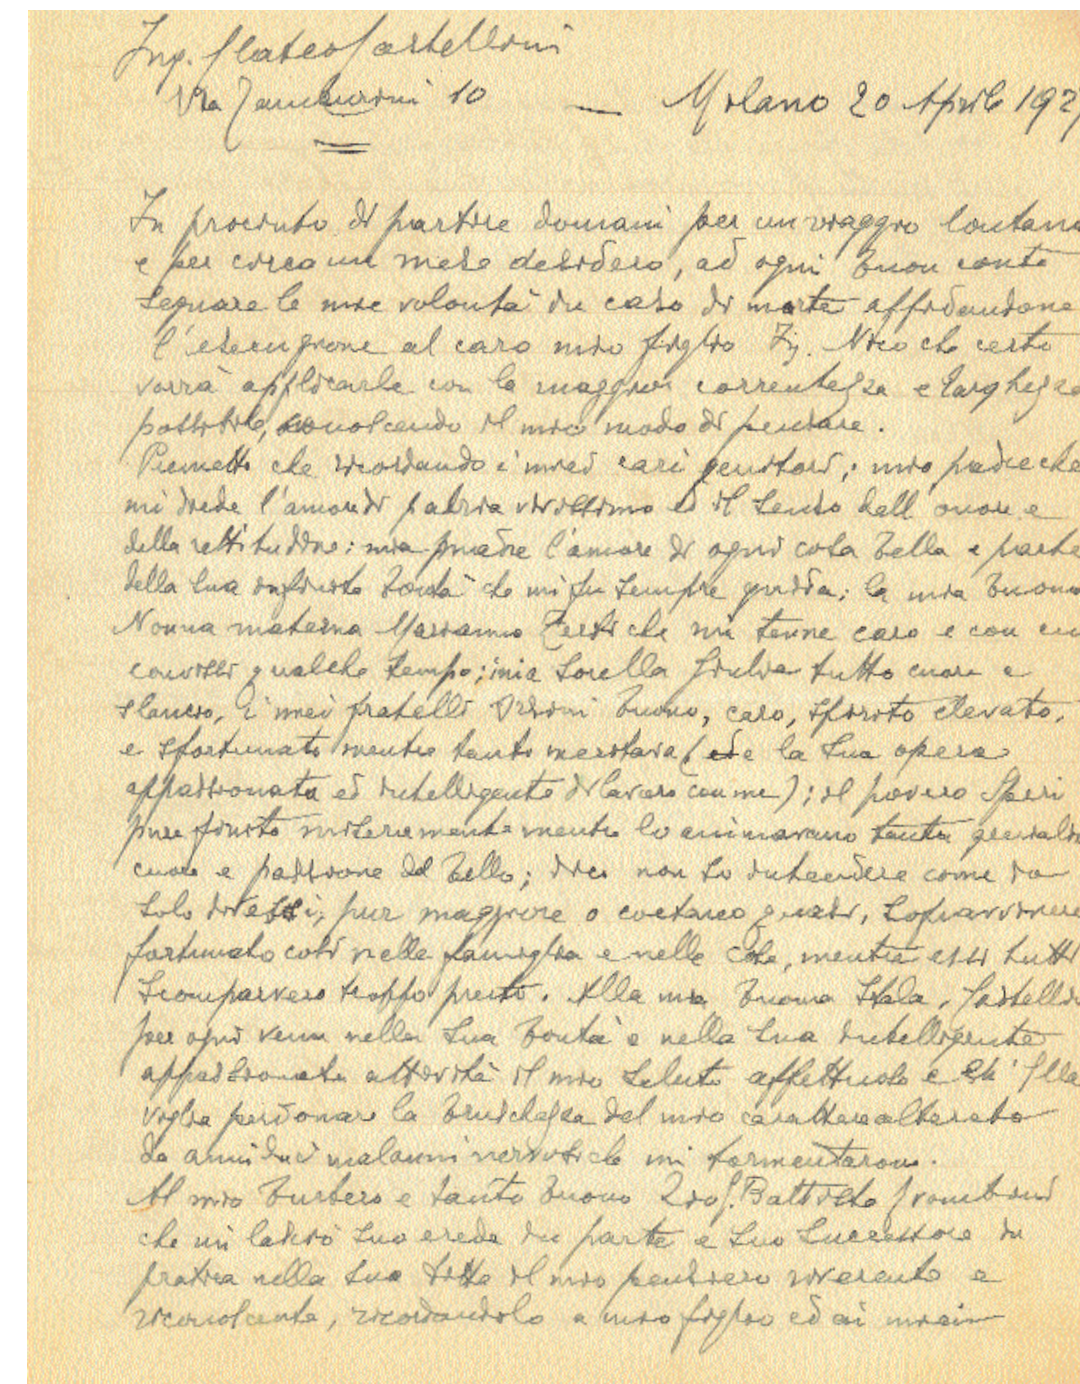 Ing. Matteo Castellini
Via 10 — Milano 20 Aprile 192
In procinto di partire domani per un viaggio lontano
e per circa un mese desidero, ad ogni buon conto
segnare le mie volontà in caso di morte affidandone
l'esecuzione al caro mio figlio Ing. Nico che certo
vorrà applicarle con la maggior correntezza e larghezza
possibile, conoscendo il mio modo di pensare.
Premetto che ricordando i miei cari genitori; mio padre che
mi diede l'amor di patria vivissimo ed il senso dell'onore e
della rettitudine; mia madre l'amore di ogni cosa bella e parte
della sua infinita bontà che mi fu sempre guida; la mia buona
Nonna materna Marianna che mi tenne caro e con cui
convissi qualche tempo; mia sorella Giulia tutto cuore e
slancio, i miei fratelli buono, caro, spirito elevato,
e sfortunato mentre tanto meritava ( e la sua opera
appassionata ed intelligente di lavoro con me); il povero
pure finito miseramente mentre lo animavano tanta genialità
cuore e passione del bello; dico non so intendere come io
solo di essi, pur maggiore o coetaneo quasi, sopravvivere
fortunato così nella famiglia e nelle cose, mentre essi tutti
scomparvero troppo presto. Alla mia buona Itala, Castellini
per ogni vena nella sua bontà e nella sua intelligente
appassionata attività il mio saluto affettuoso e che Ella
voglia perdonare la bruschezza del mio carattere alterato
da annidati malanni nervosi che mi tormentarono.
Al mio burbero e tanto buono Prof. Battista
che mi lasciò suo erede in parte e suo successore in
pratica nella sua ditta il mio pensiero riverente e
riconoscente, ricordandolo a mio figlio ed ai miei